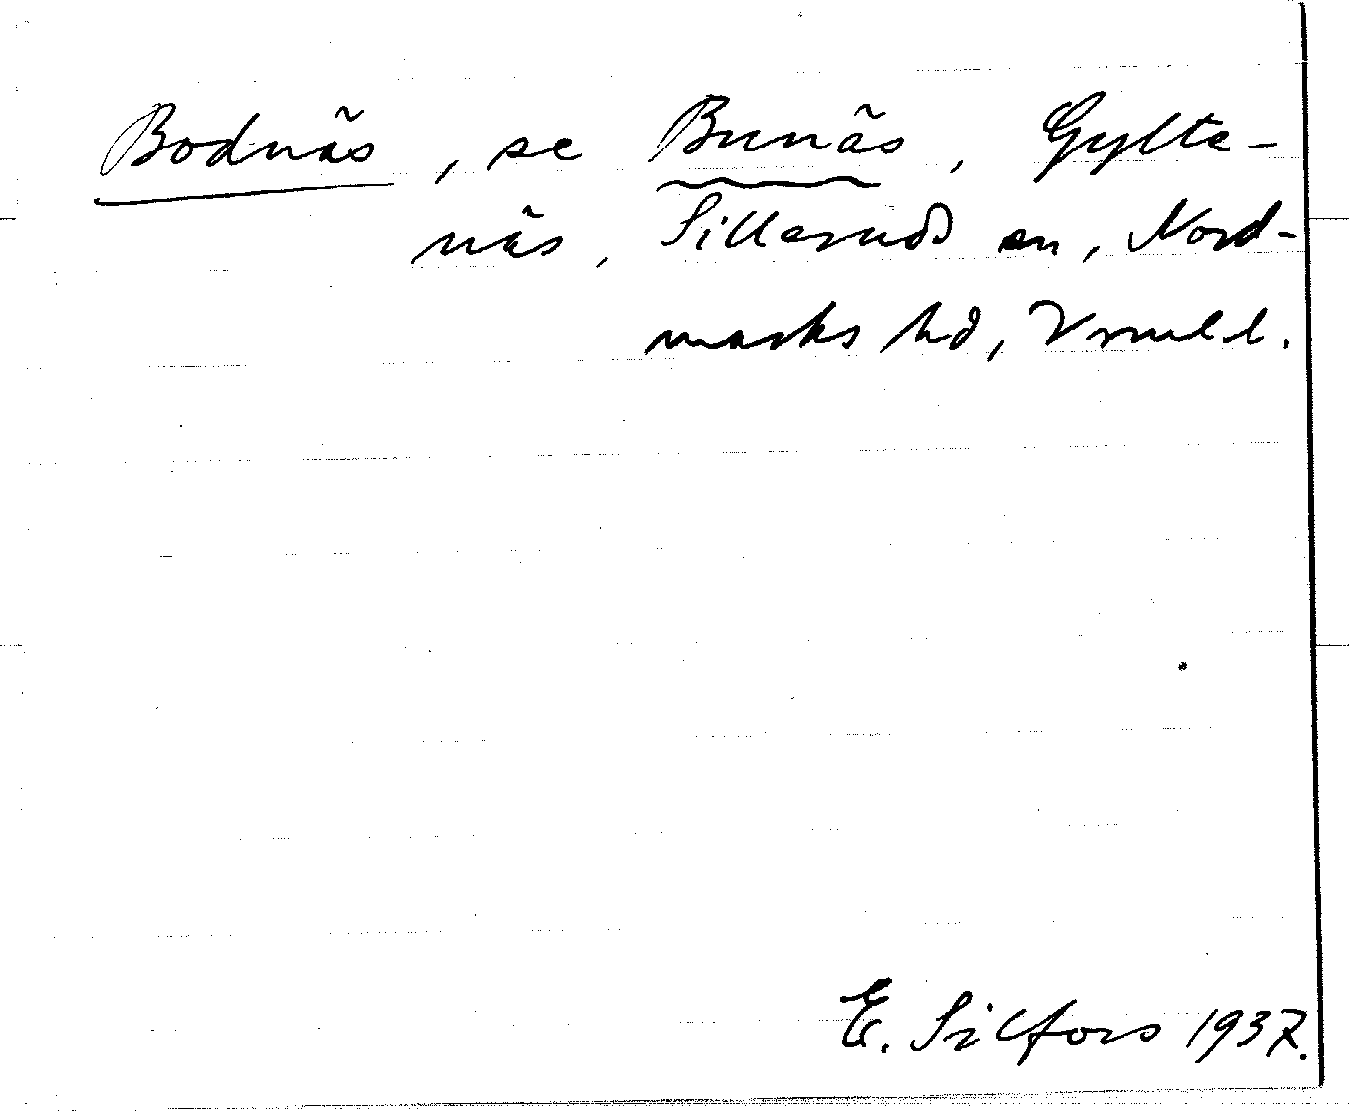 Bodnäs, se Bunäs, Gylte-
näs, Silleruds sn, Nord-
marks hd, Vrmll.
E. Silfors 1937.